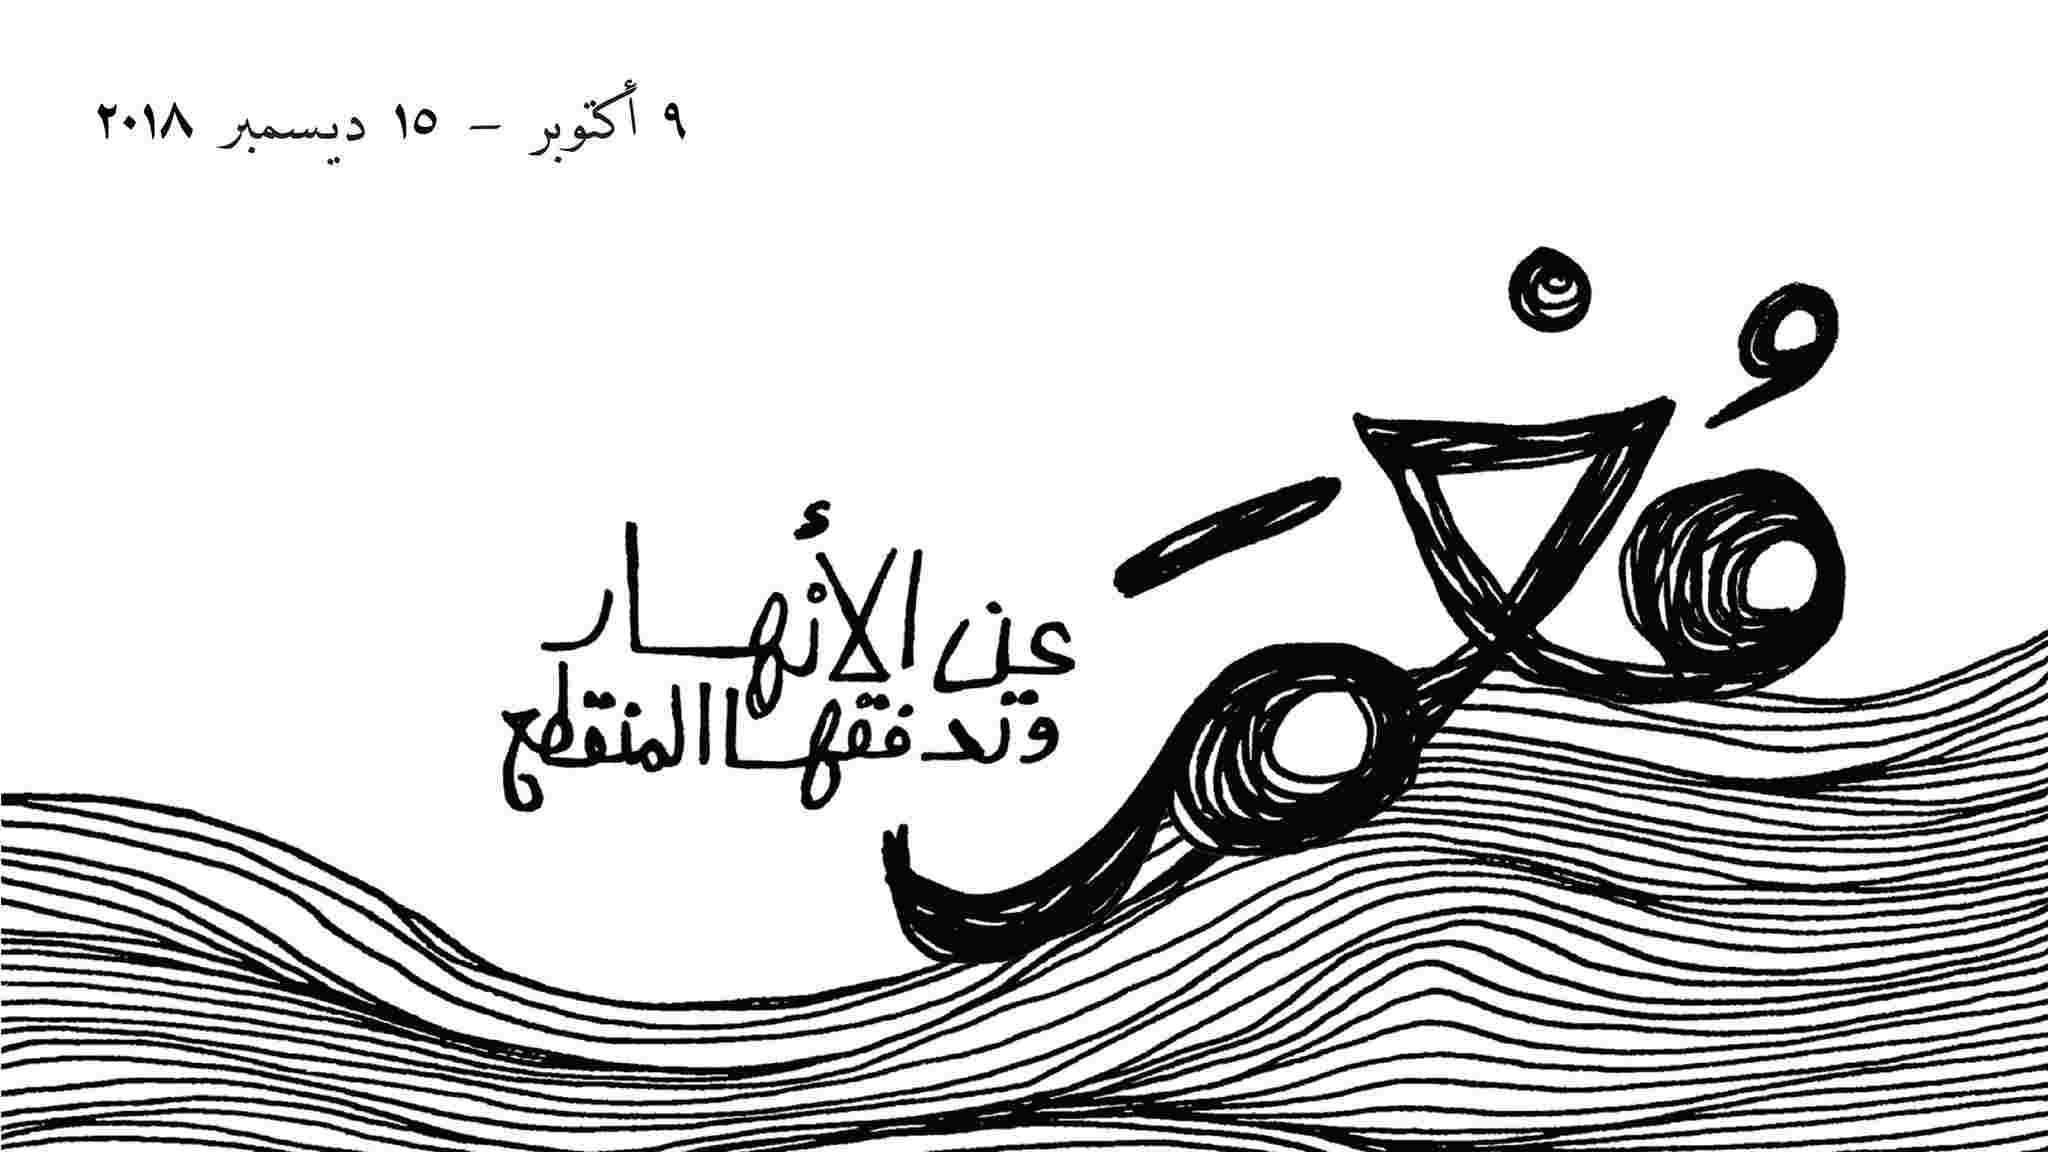 ٩ أكتوبر – ١٥ ديسمبر ٢٠١٨
مُغمَر
عن الأنهار
وتدفقها المنقطع